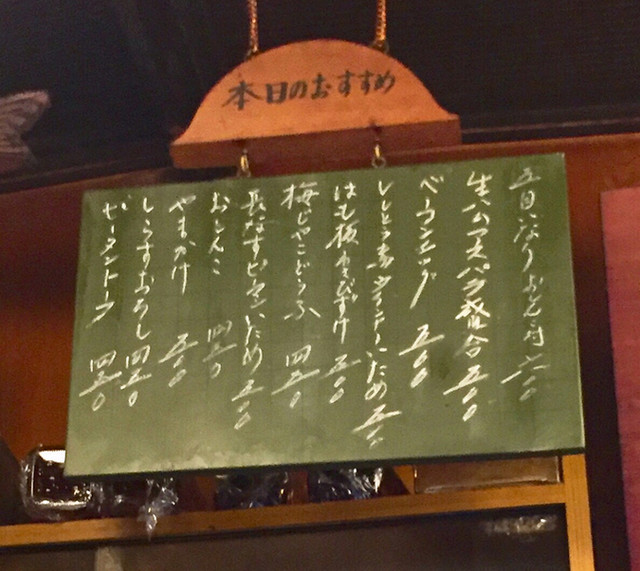 本日のおすすめ
五目いなりおとし 六〇〇
生ハムアスパラ盛合 五〇〇
ベーコンエッグ 五〇〇
ししとうウインナーいため 五〇〇
はも板わさびづけ 五〇〇
梅じゃこどうふ 四五〇
長なすピーマンいため 五〇〇
おしんこ 四五〇
やまかけ 五〇〇
しらすおろし 四五〇
ピータントーフ 四五〇